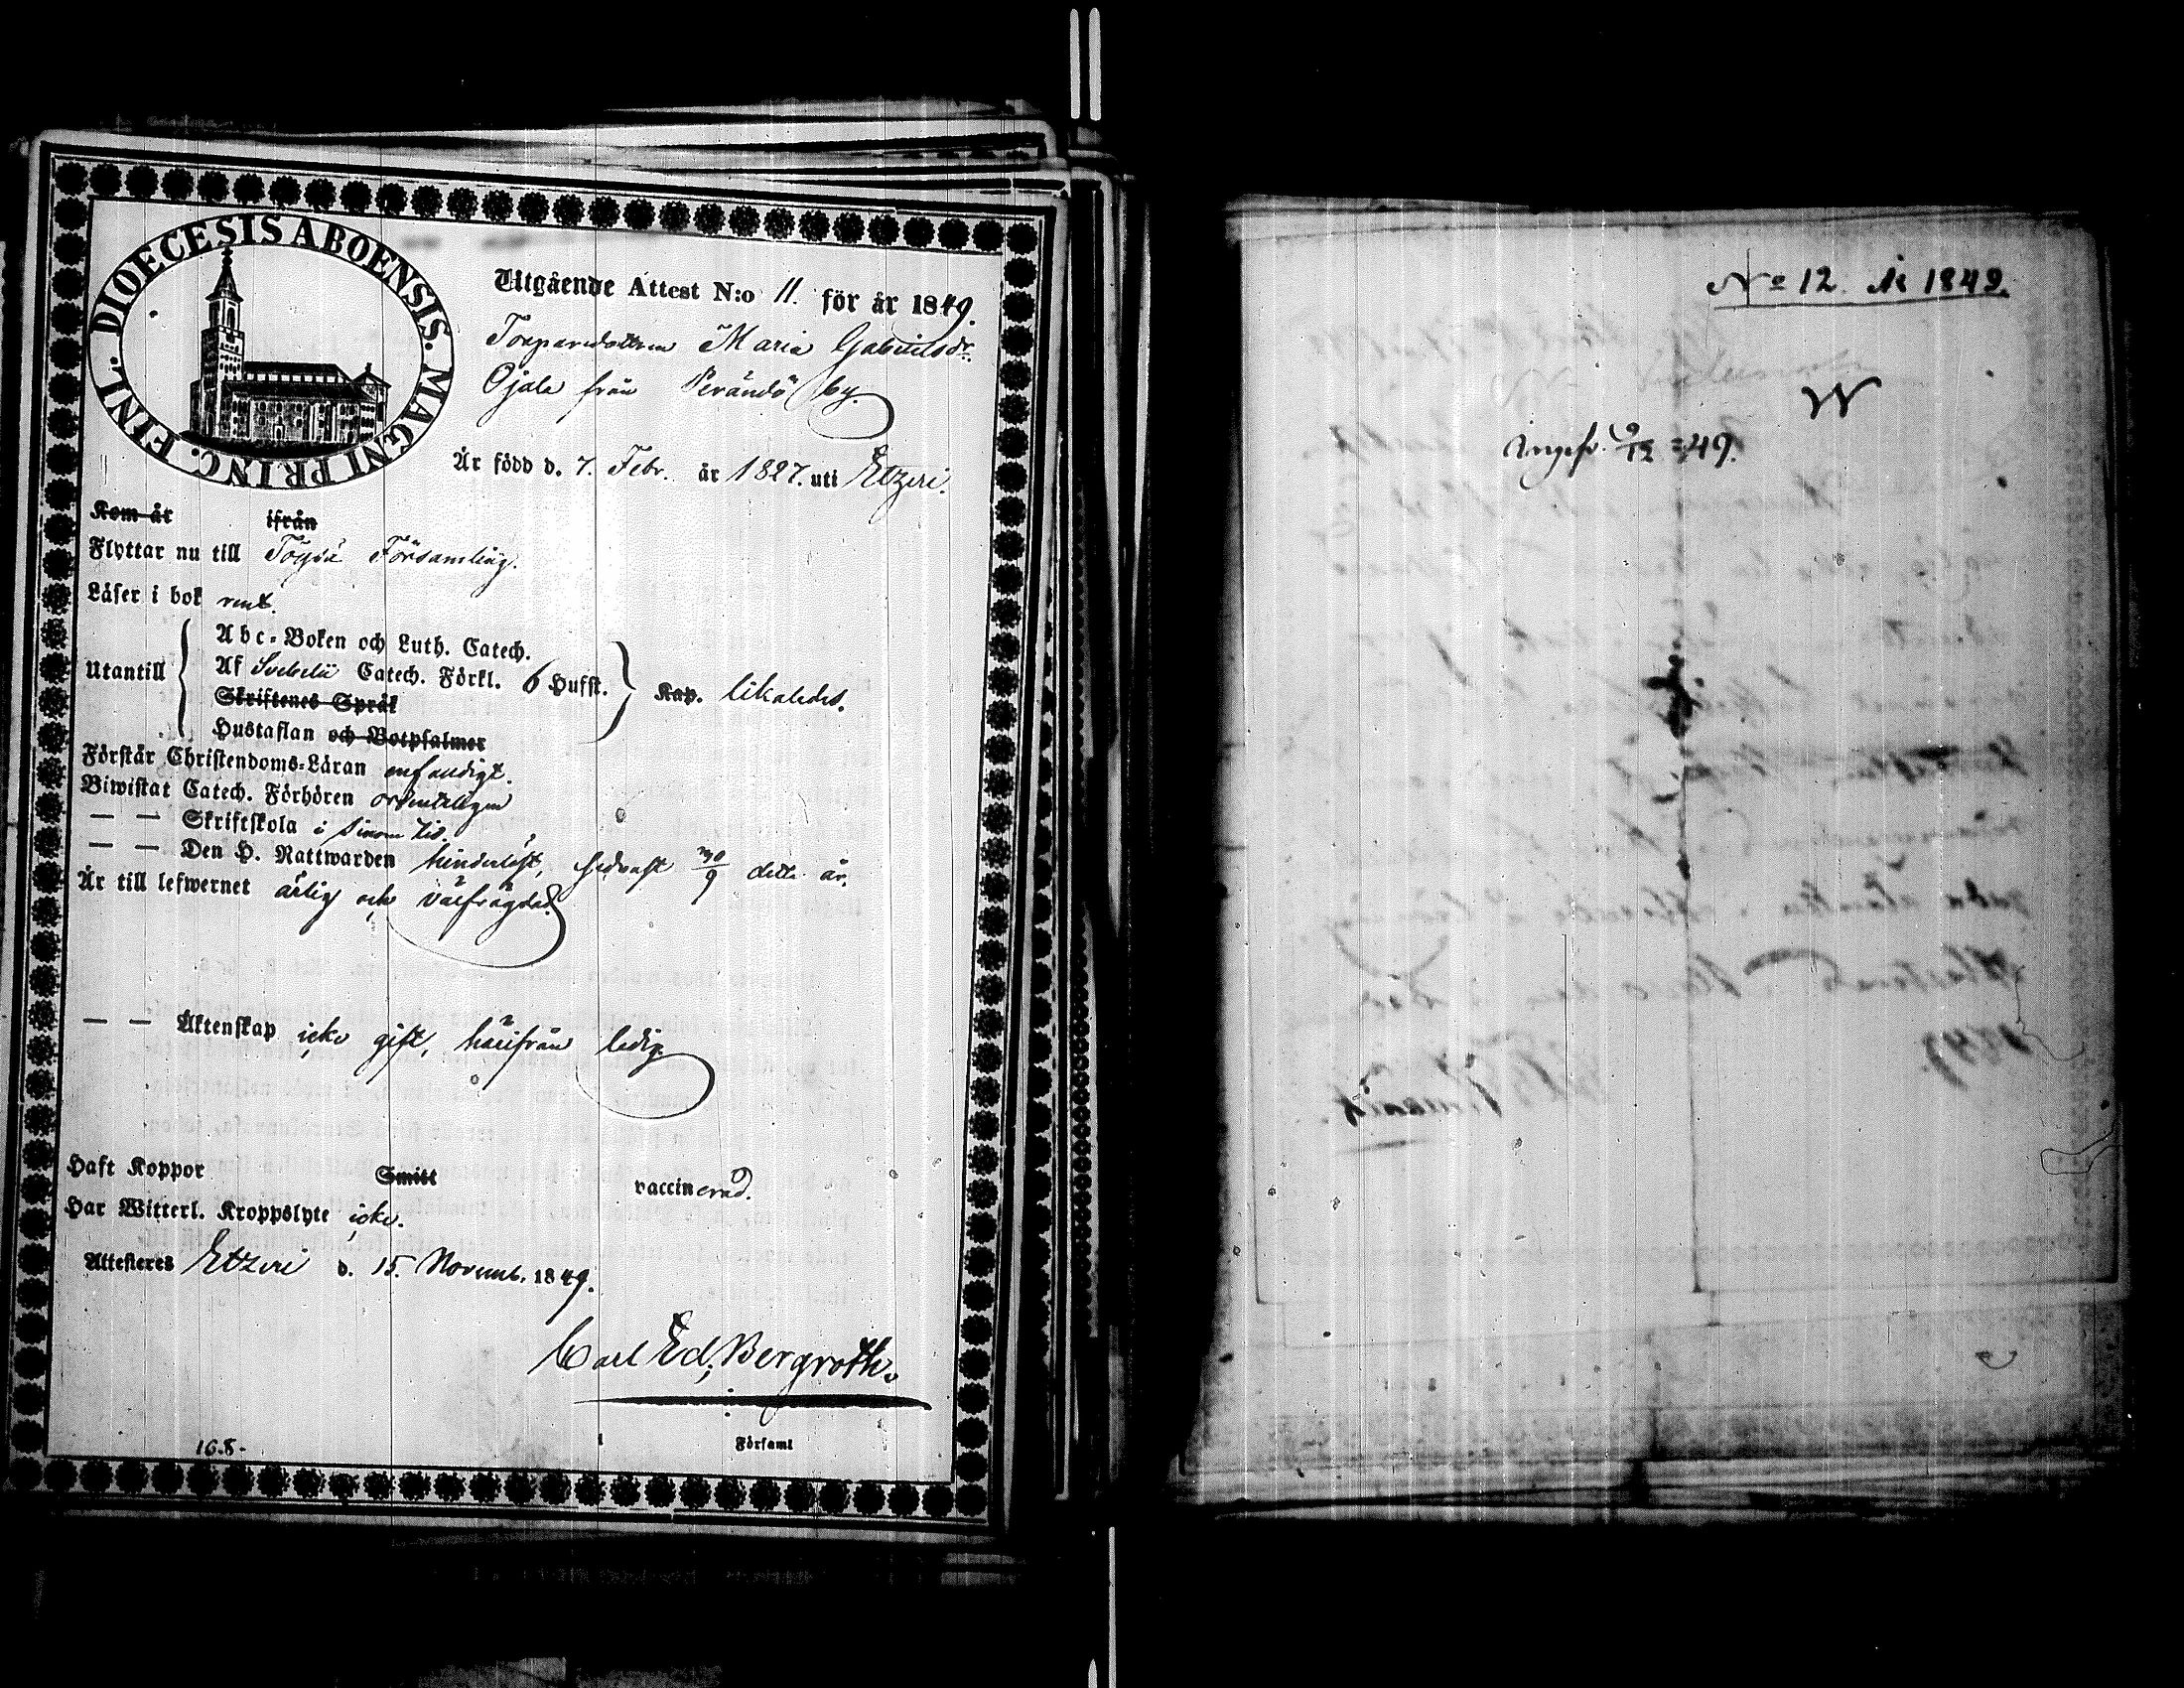 DIOECESIS ABOENSIS. MAGNI PRINC. FINL.
Utgående Attest N:o 11. för år 1849.
Torparedottren Maria Gabrielsdr.
Ojala från Perändö by.
Är född d. 7. Febr. år 1827. uti Etzeri.
Kom år ifrån
Flyttar nu till Töysä Församling.
Läser i bok rent.
Abc-Boken och Luth. Catech.
Utantill Af Svebelii Catech. Förkl. 6 Hufst. Kap. likaledes.
Skriftenes Språk
Hustaflan och Botpsalmer
Förstår Christendoms-Läran enfaldigt.
Biwistat Catech. Förhören ordentligen
— — Skriftskola i sinom tid.
— — Den H. Nattwarden hinderlöst, sednast 30/9 detta år.
Är till lefwernet ärlig och välfrägdad.
— — Äktenskap icke gift, härifrån ledig.
Haft Koppor Smitt vaccinerad.
Har Witterl. Kroppslyte icke.
Attesteres Etzeri d. 15. Novemb. 1849.
Carl Ed. Bergroth.
Församl
168-
No 12. År 1849.
W
Angifv. 9/12 49.